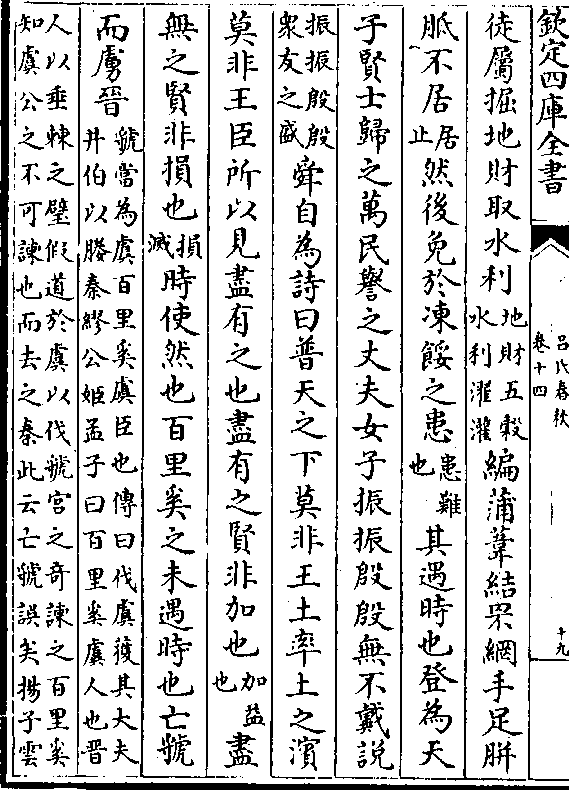 欽定四庫全書
呂氏春秋
卷十四
十九
徒屬掘地財取水利地財五榖水利濯灌編蒲葦結罘網手足胼
胝不居居止然後免於凍餒之患患難也其遇時也登為天
子賢士歸之萬民譽之丈夫女子振振殷殷無不戴說
振振殷殷衆友之盛舜自為詩曰普天之下莫非王土率土之濱
莫非王臣所以見盡有之也盡有之賢非加也加益也盡
無之賢非損也損滅時使然也百里奚之未遇時也亡虢
而虜晉虢當為虞百里奚虞臣也傳曰伐虞獲其大夫井伯以媵秦繆公姬孟子曰百里奚虞人也晉
人以垂棘之璧假道於虞以伐虢宫之奇諫之百里奚知虞公之不可諫也而去之秦此云亡虢誤矣揚子雲